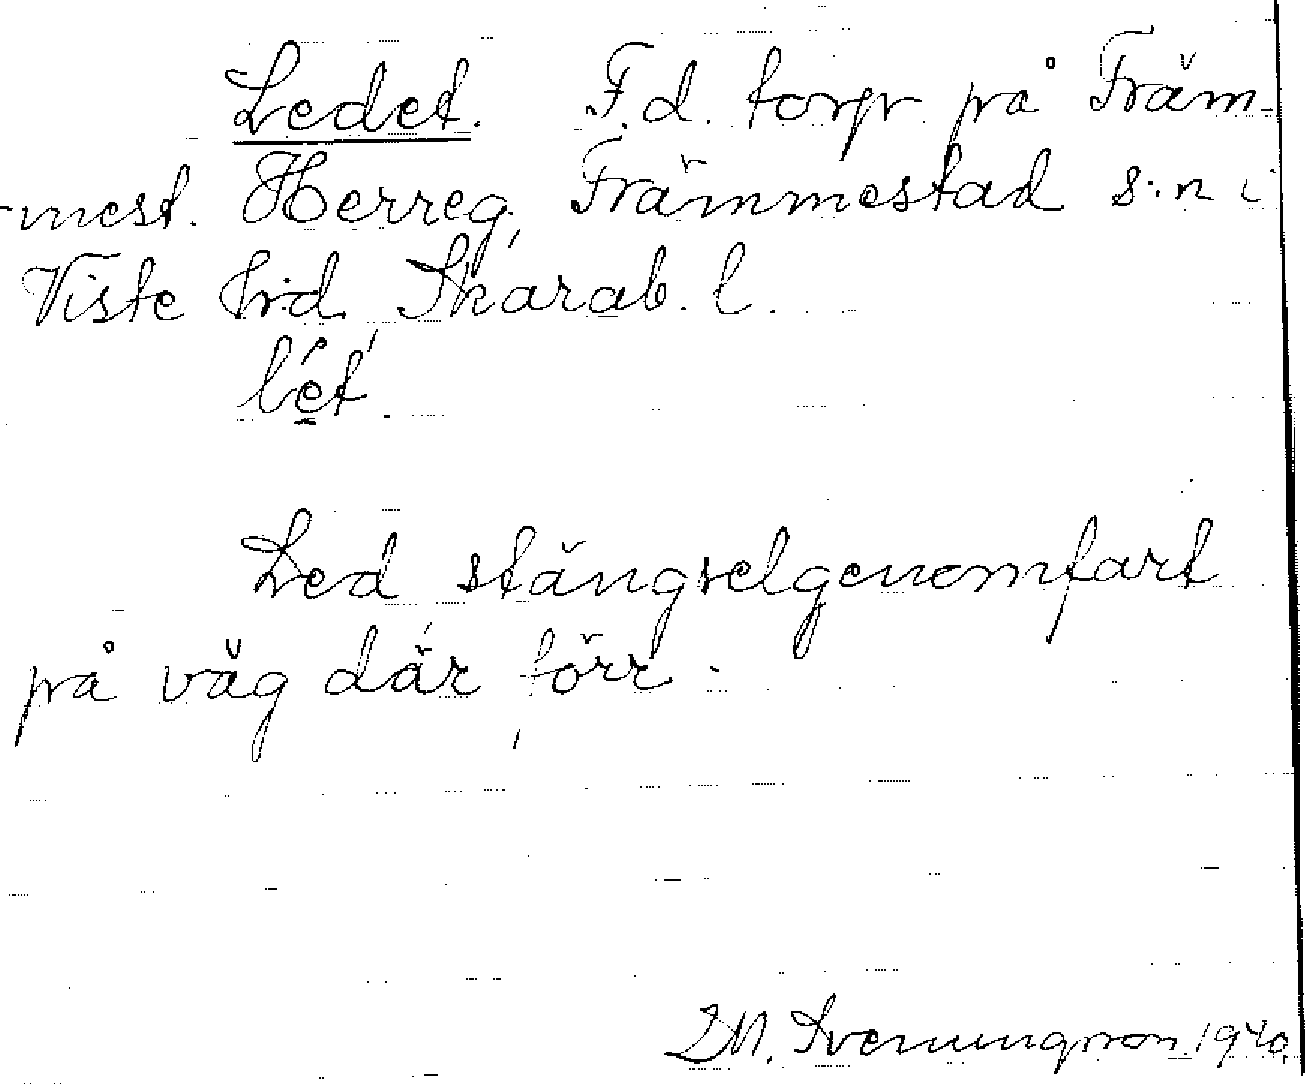 Ledet. F.d. torp på Främ-
-mest. Herreg. Främmestad s:n i
Viste hrd, Skarab. l.
Led stängselgenomfart
på väg där förr.
Svenungsson 1940